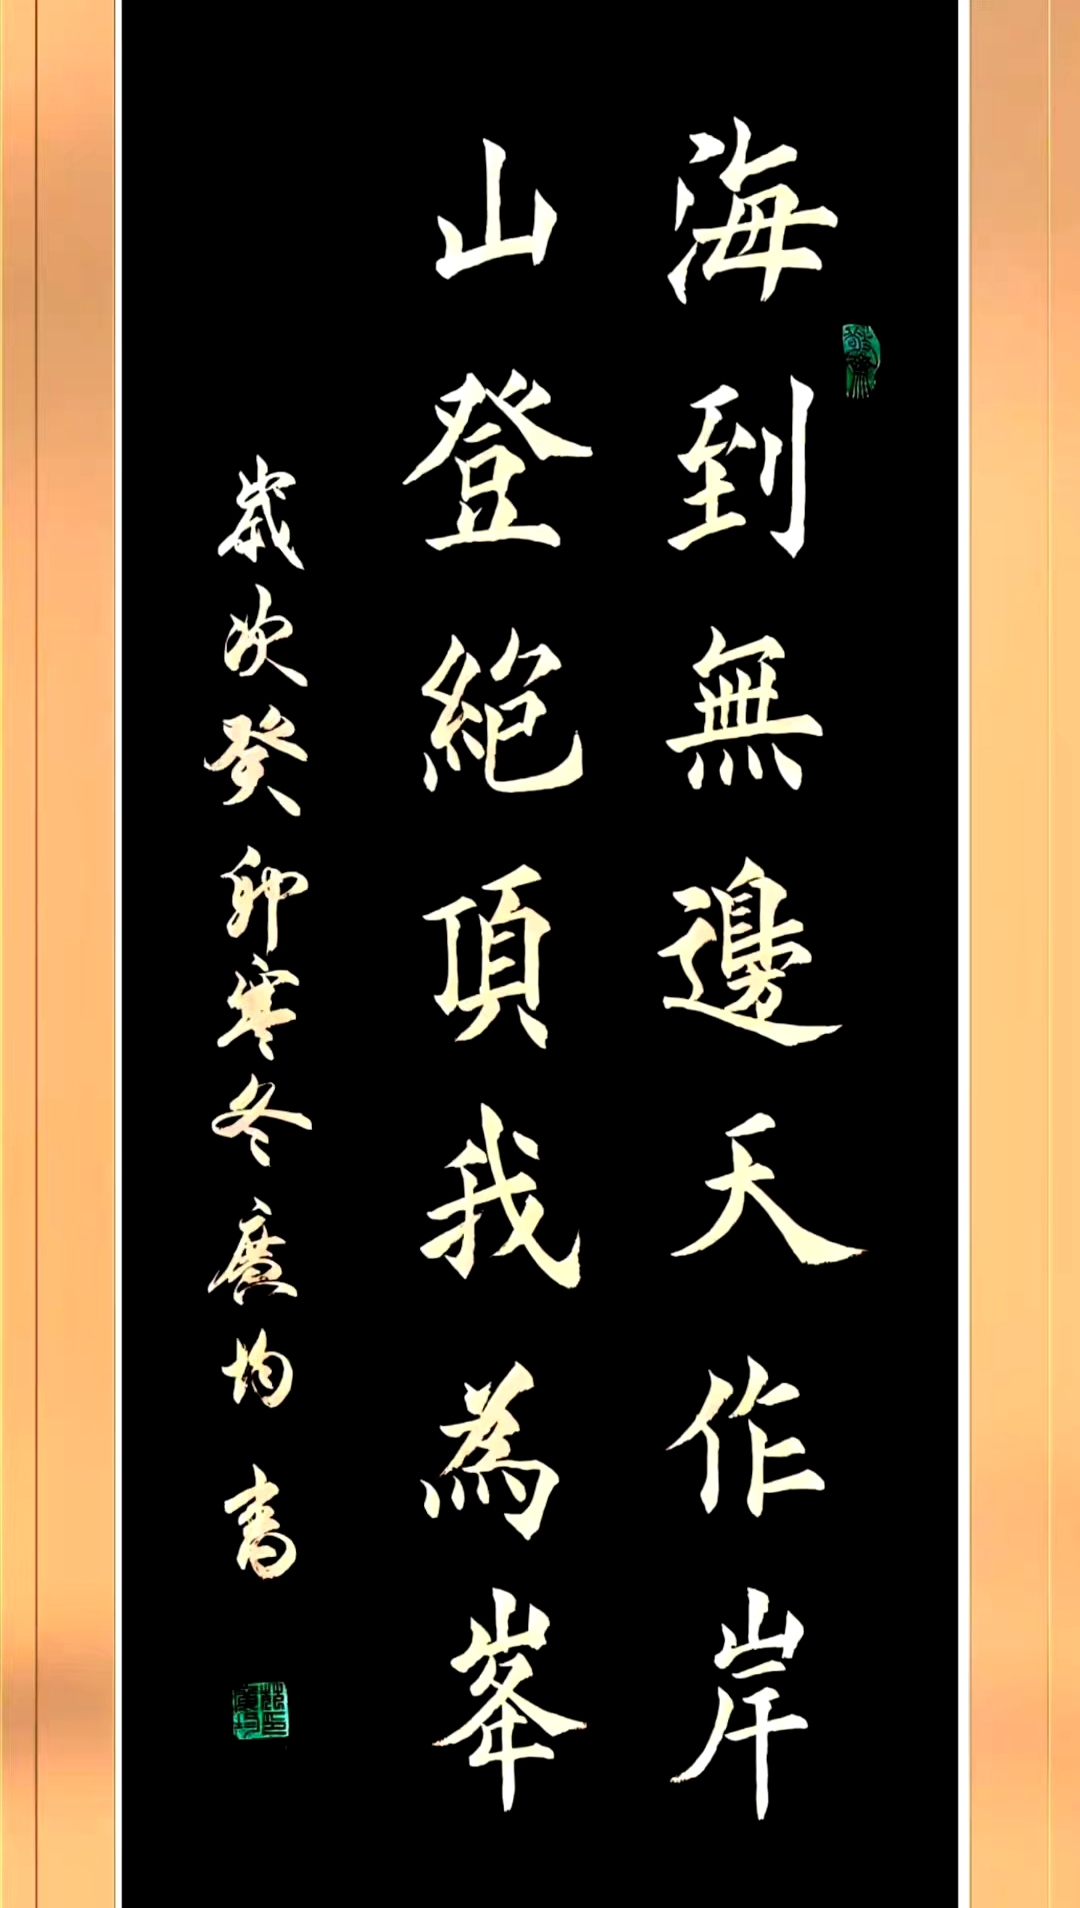 海到無邊天作岸
山登絕頂我為峯
歲次癸卯寒冬廣均書